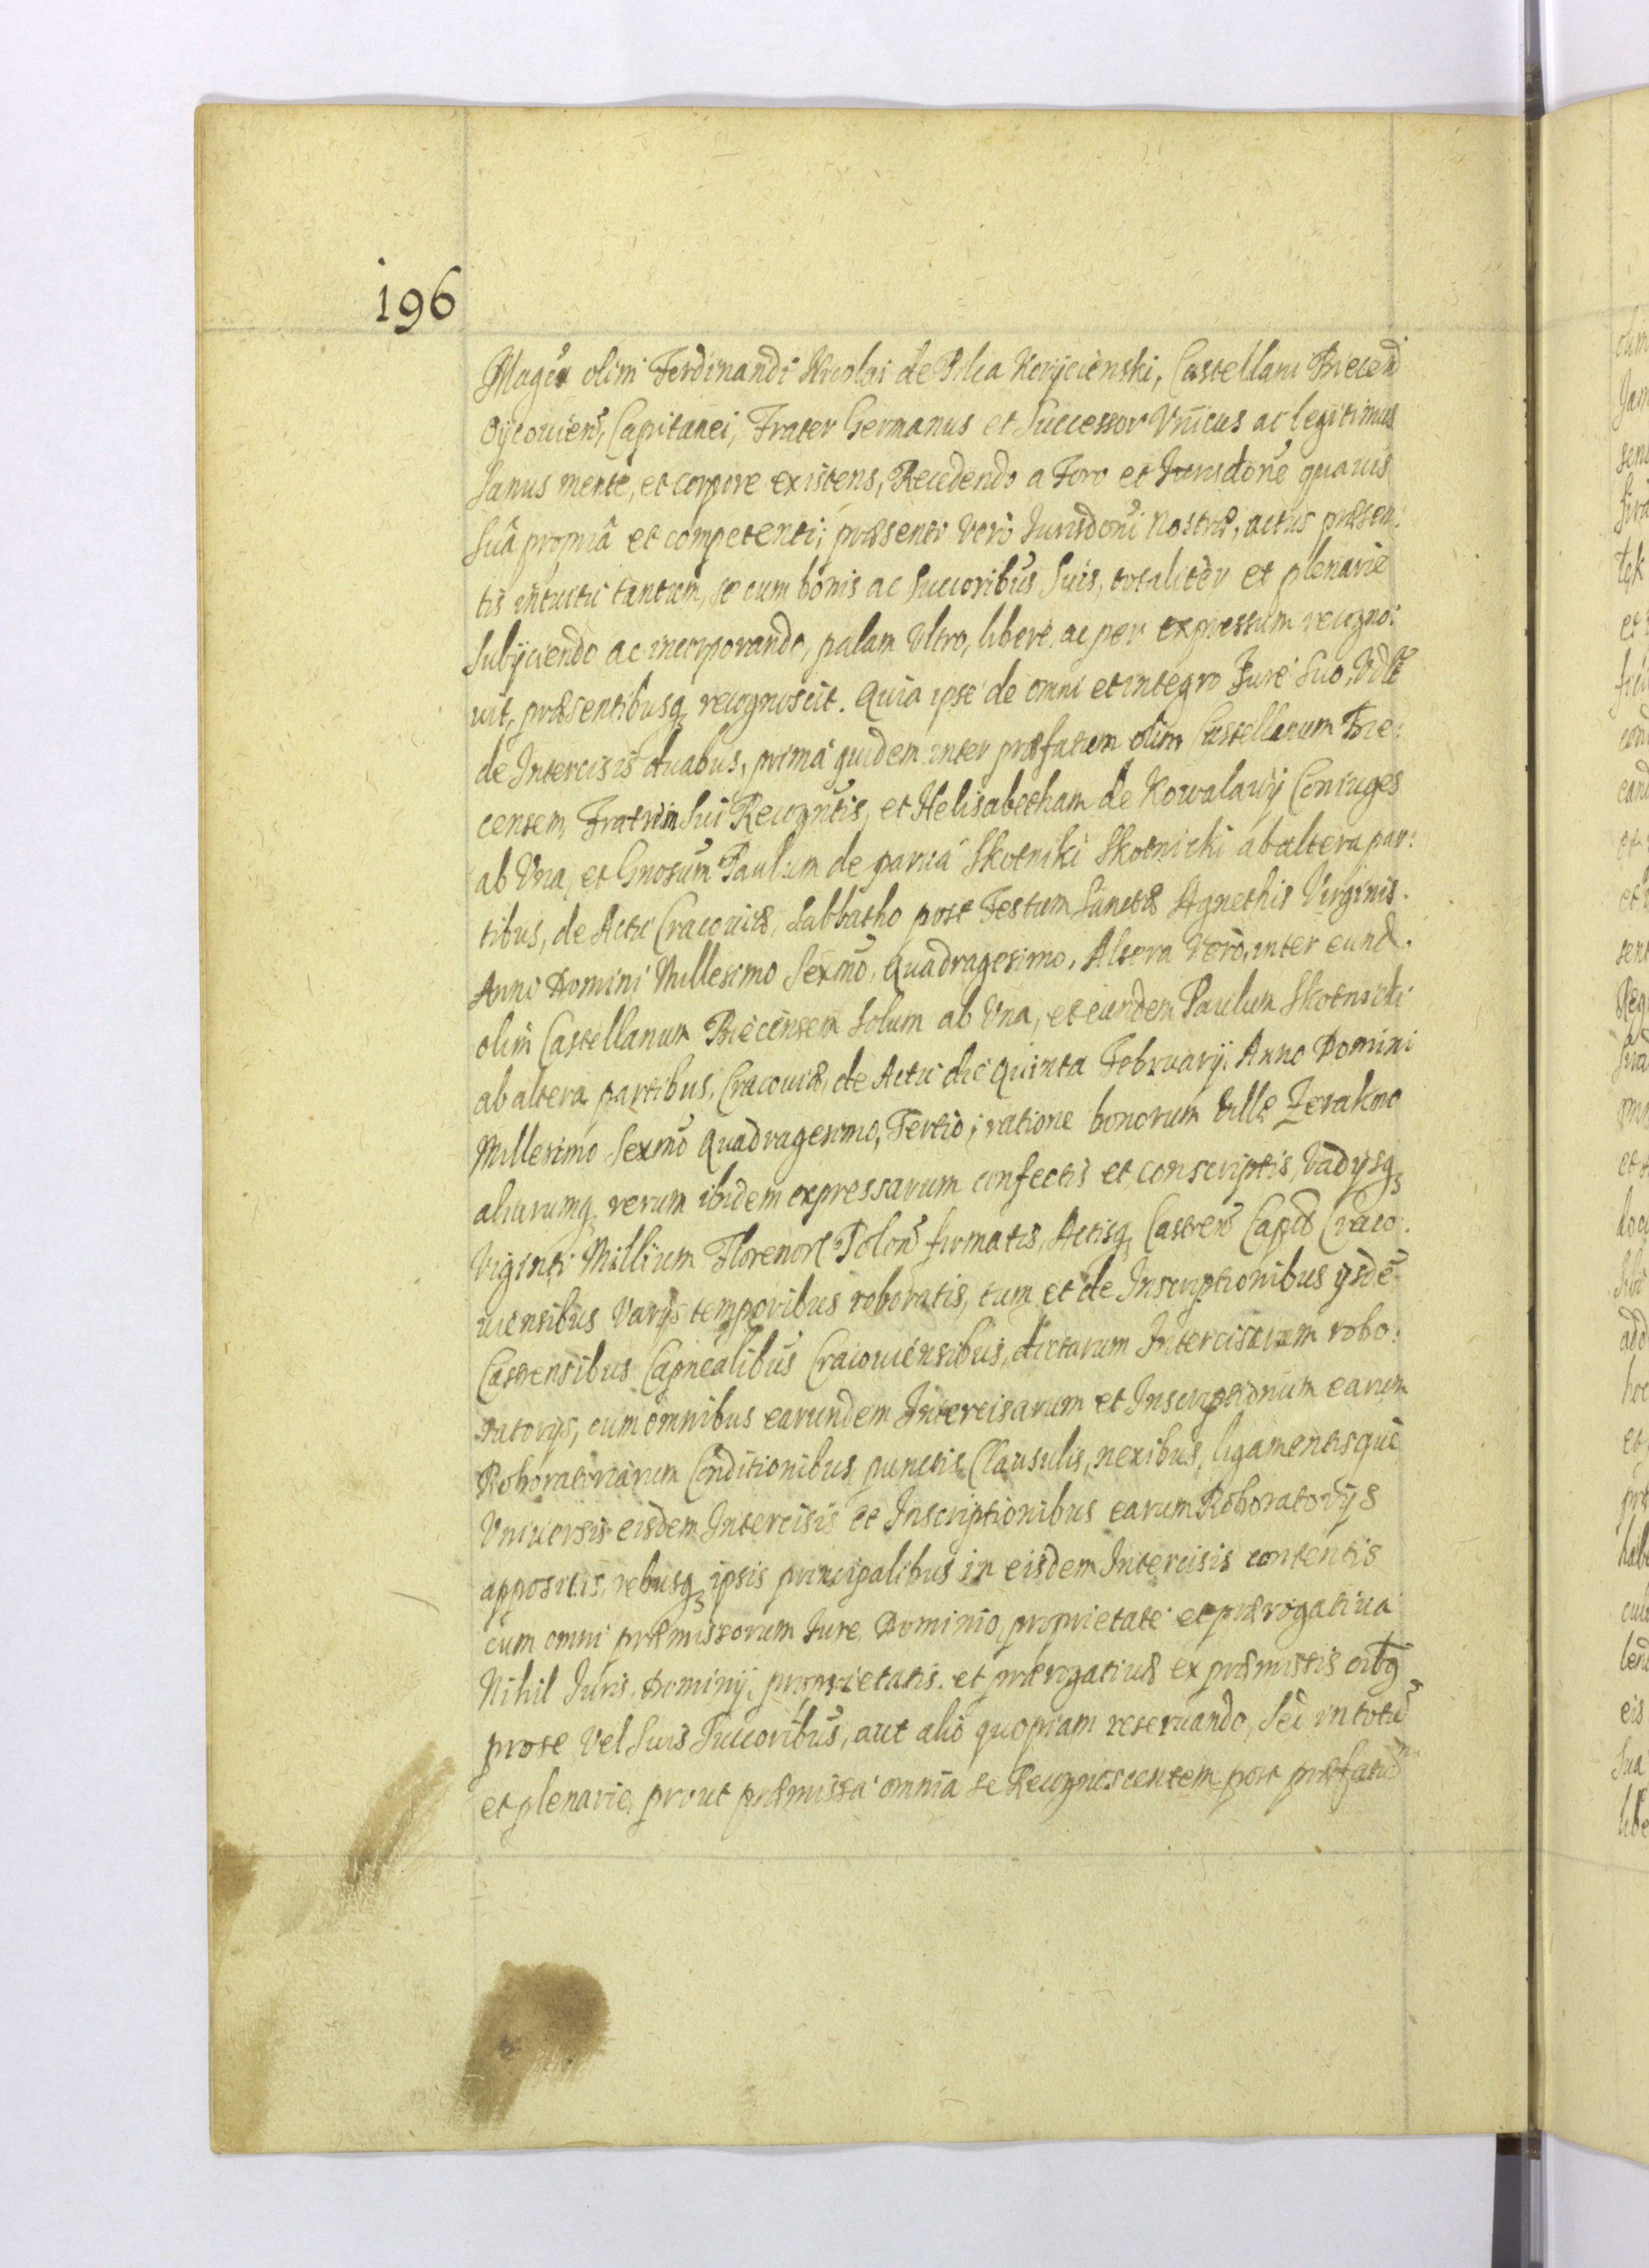 196
Magci olim Ferdinandi Nicolai de Pilca Korycienski, Castellani Biecen
Oycouien, Capitanei, Frater Germanus et Successor Vnicus ac legitimus
Sanus mente, et corpore existens, Recedendo a Foro et Iurisdone quauis
Suâ propriâ et competenti; præsenti Verò Iurisdoni nostræ, actus præsen:
tis intuitu tantum, se cum bonis ac Succoribus Suis, totalitèr et plenariè
Subijciendo ac incorporando, palam Vltro, liberè ac per expressum recogno:
uit, præsentibusq recognoscit. Quia ipse de omni et integro Iure Suo, Vdlt
de Intercisis duabus, prima quidem inter præfatum olim Castellanum Bie:
censem, Fratrem Sui Recogntis, et Helisabetham de Kowalawÿ Coniuges
ab Vna, et Gnosum Paulum de parua Skotniki Skotnicki ab altera par:
tibus, de Actu Cracouiæ, Sabbatho post Festum Sanctæ Agnethis Virginis.
Anno Domini Millesimo Sexmo, Quadragesimo, Altera Verò, inter eund.
olim Castellanum Biecensem Solum ab Vna, et eundem Paulum Skotnicki
ab altera partibus, Cracouiæ, de Actu die Quinta Februarij. Anno Domini
Millesimo Sexmo Quadragesimo, Tertio; ratione bonorum Villæ Zerakmo
aliarumq rerum ibidem expressarum confectis et conscriptis, Vadÿsq
Viginti Millium Florenor Polon firmatis, Actisq Castren Capid Craco:
uiensibus Varijs temporibus roboratis, tum et de Inscriptionibus ÿsdé
Castrensibus Capnealibus Cracouiensibus, dictarum Intercisarum robo:
ratorÿs, cum omnibus earundem Intercisarum et Inscriptionum earum
Roboratoriarum Conditionibus, punctis, Clausulis, nexibus, ligamentisquè
Vniuersis eisdem Intercisis et Inscriptionibus earum Roboratorÿs
appositis, rebusq ipsis principalibus in eisdem Intercisis contentis
cum omni præmissorum Iure, Dominio, proprietate et prærogatiua
Nihil Iuris, Dominÿ, proprietatis, et prærogatiuæ ex præmissis oibq
prose Vel Suis Succoribus, aut alio quopiam reseruando, Sed in totu
et plenarie, prout præmissa omnia se Recognoscentem post præfatu